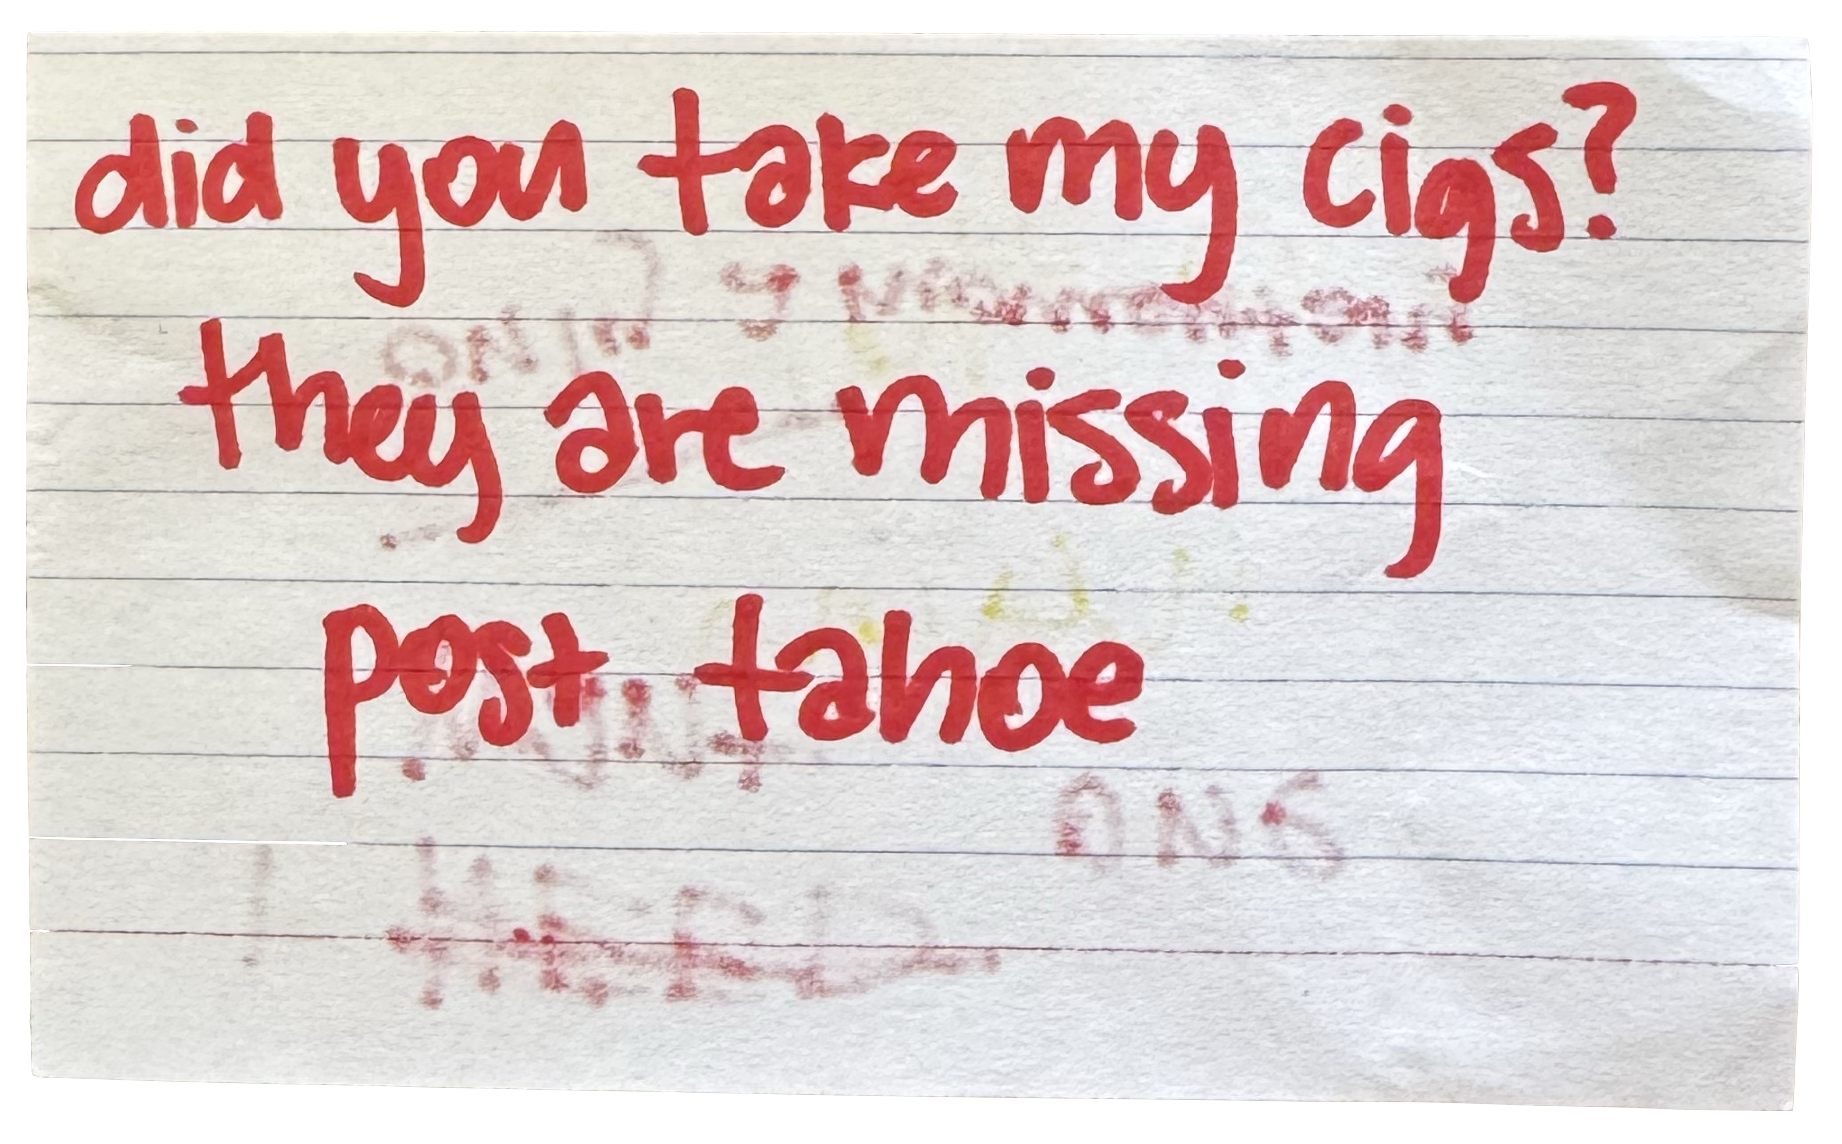 did you take my cigs?
they are missing
post tahoe